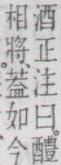 酒正注曰。醴
相將。葢如今